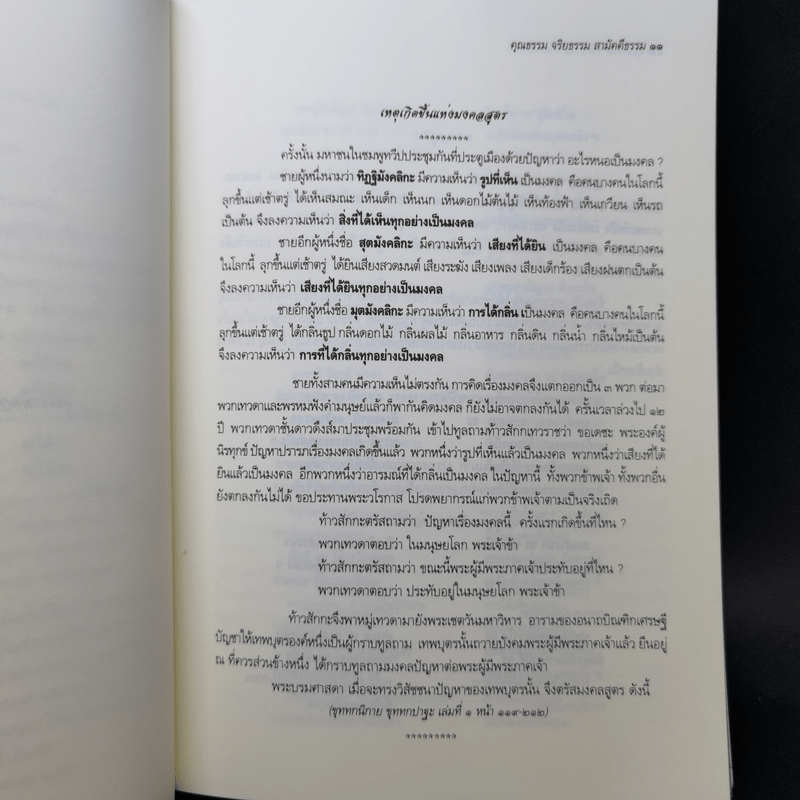 คุณธรรม จริยธรรม สามัคคีธรรม ๑๑
เหตุเกิดขึ้นแห่งมงคลสูตร
*********
ครั้งนั้น มหาชนในชมพูทวีปประชุมกันที่ประตูเมืองด้วยปัญหาว่า อะไรหนอเป็นมงคล ?
ชายผู้หนึ่งนามว่า ทิฏฐิมังคลิกะ มีความเห็นว่า รูปที่เห็น เป็นมงคล คือคนบางคนในโลกนี้
ลุกขึ้นแต่เช้าตรู่ ได้เห็นสมณะ เห็นเด็ก เห็นนก เห็นดอกไม้ต้นไม้ เห็นท้องฟ้า เห็นเกวียน เห็นรถ
เป็นต้น จึงลงความเห็นว่า สิ่งที่ได้เห็นทุกอย่างเป็นมงคล
ชายอีกผู้หนึ่งชื่อ สุตมังคลิกะ มีความเห็นว่า เสียงที่ได้ยิน เป็นมงคล คือคนบางคน
ในโลกนี้ ลุกขึ้นแต่เช้าตรู่ ได้ยินเสียงสวดมนต์ เสียงระฆัง เสียงเพลง เสียงเด็กร้อง เสียงฝนตกเป็นต้น
จึงลงความเห็นว่า เสียงที่ได้ยินทุกอย่างเป็นมงคล
ชายอีกผู้หนึ่งชื่อ มุตมังคลิกะ มีความเห็นว่า การได้กลิ่น เป็นมงคล คือคนบางคนในโลกนี้
ลุกขึ้นแต่เช้าตรู่ ได้กลิ่นธูป กลิ่นดอกไม้ กลิ่นผลไม้ กลิ่นอาหาร กลิ่นดิน กลิ่นน้ำ กลิ่นไหม้เป็นต้น
จึงลงความเห็นว่า การที่ได้กลิ่นทุกอย่างเป็นมงคล
ชายทั้งสามคนมีความเห็นไม่ตรงกัน การคิดเรื่องมงคลจึงแตกออกเป็น ๓ พวก ต่อมา
พวกเทวดาและพรหมฟังคำมนุษย์แล้วก็พากันคิดมงคล ก็ยังไม่อาจตกลงกันได้ ครั้นเวลาล่วงไป ๑๒
ปี พวกเทวดาชั้นดาวดึงส์มาประชุมพร้อมกัน เข้าไปทูลถามท้าวสักกเทวราชว่า ขอเดชะ พระองค์ผู้
นิรทุกข์ ปัญหาปรารภเรื่องมงคลเกิดขึ้นแล้ว พวกหนึ่งว่ารูปที่เห็นแล้วเป็นมงคล พวกหนึ่งว่าเสียงที่ได้
ยินแล้วเป็นมงคล อีกพวกหนึ่งว่าอารมณ์ที่ได้กลิ่นเป็นมงคล ในปัญหานี้ ทั้งพวกข้าพเจ้า ทั้งพวกอื่น
ยังตกลงกันไม่ได้ ขอประทานพระวโรกาส โปรดพยากรณ์แก่พวกข้าพเจ้าตามเป็นจริงเถิด
ท้าวสักกะตรัสถามว่า ปัญหาเรื่องมงคลนี้ ครั้งแรกเกิดขึ้นที่ไหน ?
พวกเทวดาตอบว่า ในมนุษยโลก พระเจ้าข้า
ท้าวสักกะตรัสถามว่า ขณะนี้พระผู้มีพระภาคเจ้าประทับอยู่ที่ไหน ?
พวกเทวดาตอบว่า ประทับอยู่ในมนุษยโลก พระเจ้าข้า
ท้าวสักกะจึงพาหมู่เทวดามายังพระเชตวันมหาวิหาร อารามของอนาถบิณฑิกเศรษฐี
บัญชาให้เทพบุตรองค์หนึ่งเป็นผู้กราบทูลถาม เทพบุตรนั้นถวายบังคมพระผู้มีพระภาคเจ้าแล้ว ยืนอยู่
ณ ที่ควรส่วนข้างหนึ่ง ได้กราบทูลถามมงคลปัญหาต่อพระผู้มีพระภาคเจ้า
พระบรมศาสดา เมื่อจะทรงวิสัชชนาปัญหาของเทพบุตรนั้น จึงตรัสมงคลสูตร ดังนี้
(ขุททกนิกาย ขุททกปาฐะ เล่มที่ ๑ หน้า ๑๑๙-๒๑๒)
*********